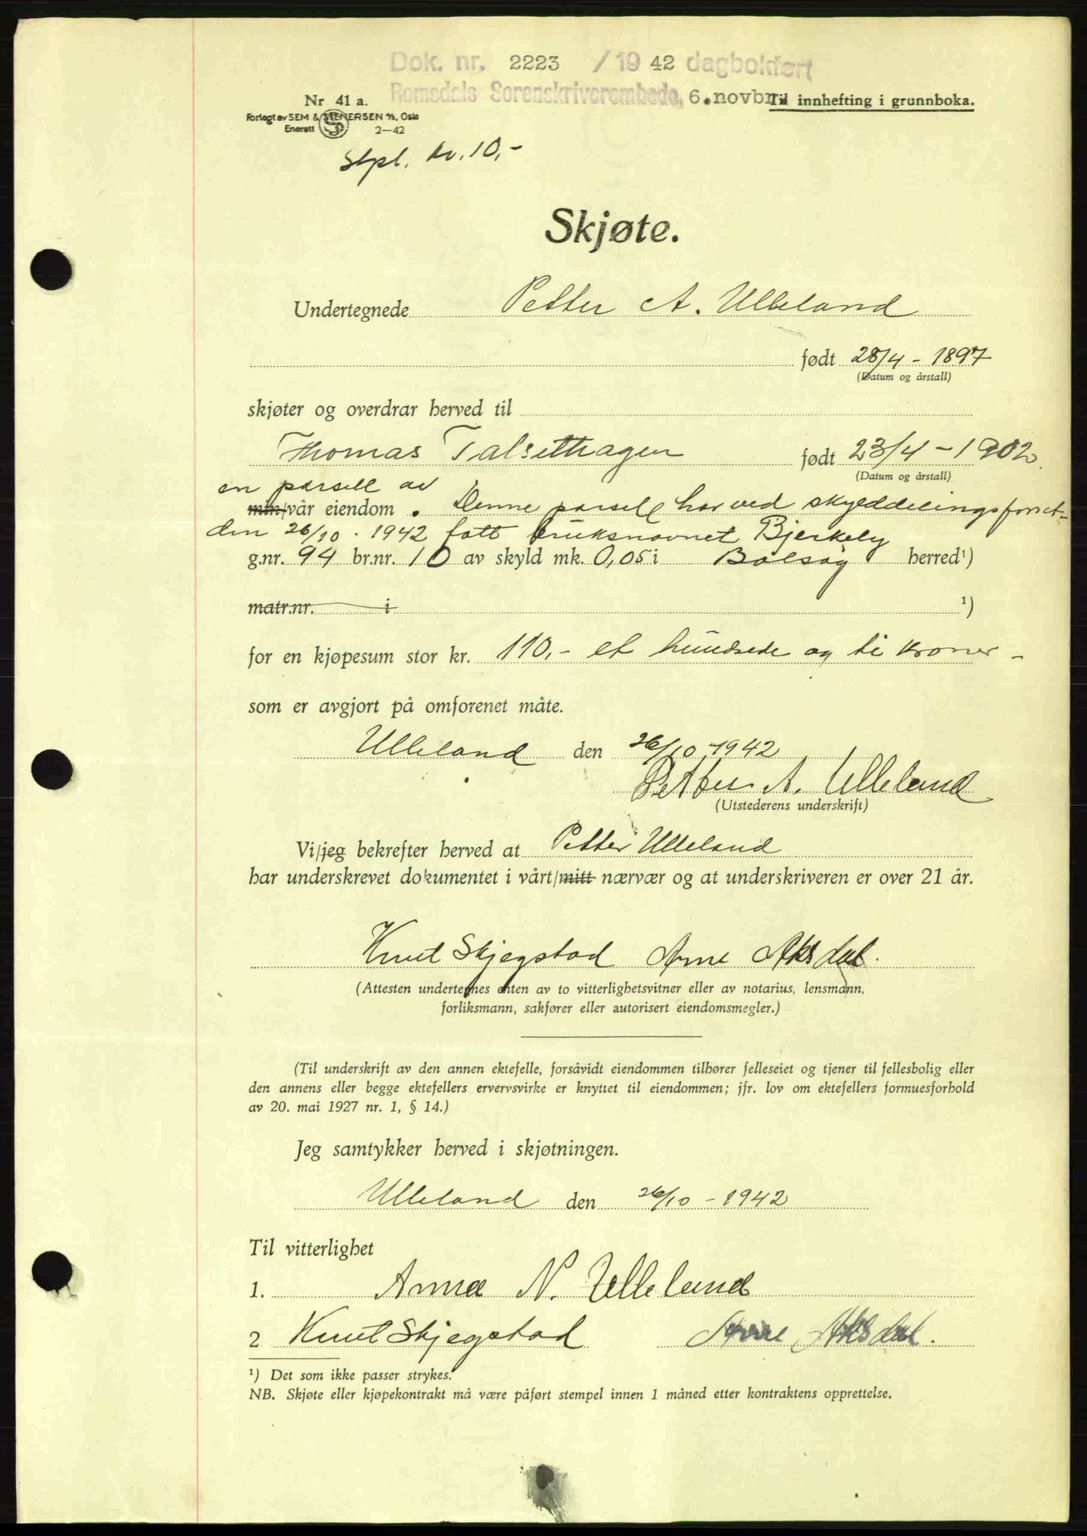 Dok. nr. 2223 /19 42 dagbokført
Romsdals Sorenskriverembede, 6.novbr.
Til innhefting i grunnboka.
Nr 41 a.
Forlagt av SEM & STENERSEN A/S, Oslo
Enerett 2-42
Stpl. kr. 10,-
Skjøte.
Undertegnede Petter A. Ulleland
født 28/4 - 1897
(Datum og årstall)
skjøter og overdrar herved til
Thomas Talsethagen født 23/4 - 1902.
(Datum og årstall)
en parsell av
min/vår eiendom. Denne parsell har ved skylddelingsforret-
den 26/10 - 1942 fått bruksnavnet Bjerkely
g.nr. 94 br.nr. 10 av skyld mk. 0,05 i Bolsøy herred¹)
matr.nr. i ¹)
for en kjøpesum stor kr. 110,- et hundrede og ti kroner -
som er avgjort på omforenet måte.
Ulleland den 26/10 - 1942
Petter A. Ulleland
(Utstederens underskrift)
Vi/jeg bekrefter herved at Petter Ulleland
har underskrevet dokumentet i vårt/mitt nærvær og at underskriveren er over 21 år.
Knut Skjegstad Arne Aksdal.
(Attesten undertegnes enten av to vitterlighetsvitner eller av notarius, lensmann,
forliksmann, sakfører eller autorisert eiendomsmegler.)
(Til underskrift av den annen ektefelle, forsåvidt eiendommen tilhører felleseiet og tjener til fellesbolig eller
den annens eller begge ektefellers ervervsvirke er knyttet til eiendommen; jfr. lov om ektefellers formuesforhold
av 20. mai 1927 nr. 1, § 14.)
Jeg samtykker herved i skjøtningen.
Ulleland den 26/10 - 1942
Til vitterlighet
1. Anna N. Ulleland
2 Knut Skjegstad Arne Aksdal.
¹) Det som ikke passer strykes.
NB. Skjøte eller kjøpekontrakt må være påført stempel innen 1 måned etter kontraktens opprettelse.